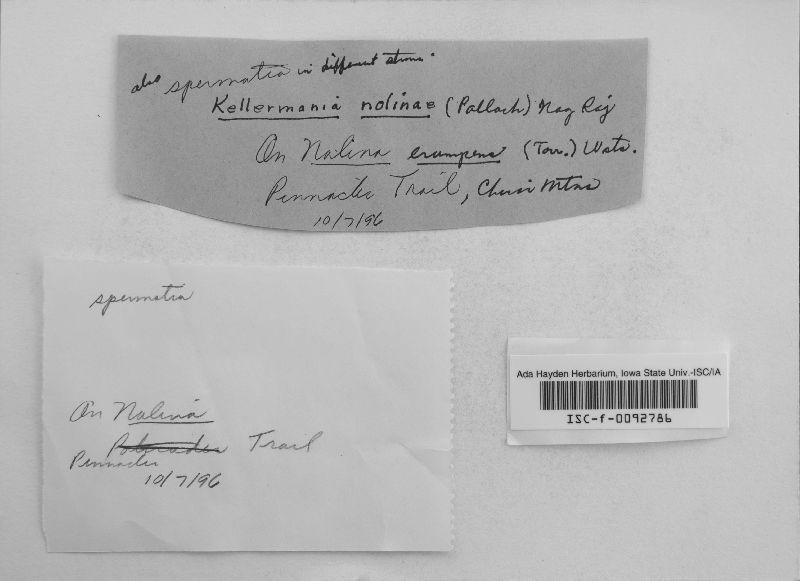 also spermatia in different stroma.
Kellermania nolinae (Pollach) Nag Raj
On Nolina erumpens (Torr.) Wats.
Pinnacles Trail, Chisos Mtns
10/7/96
spermatia
On Nolina
Trail
Pinnacles
10/7/96
Ada Hayden Herbarium, Iowa State Univ.-ISC/IA
ISC-f-0092786